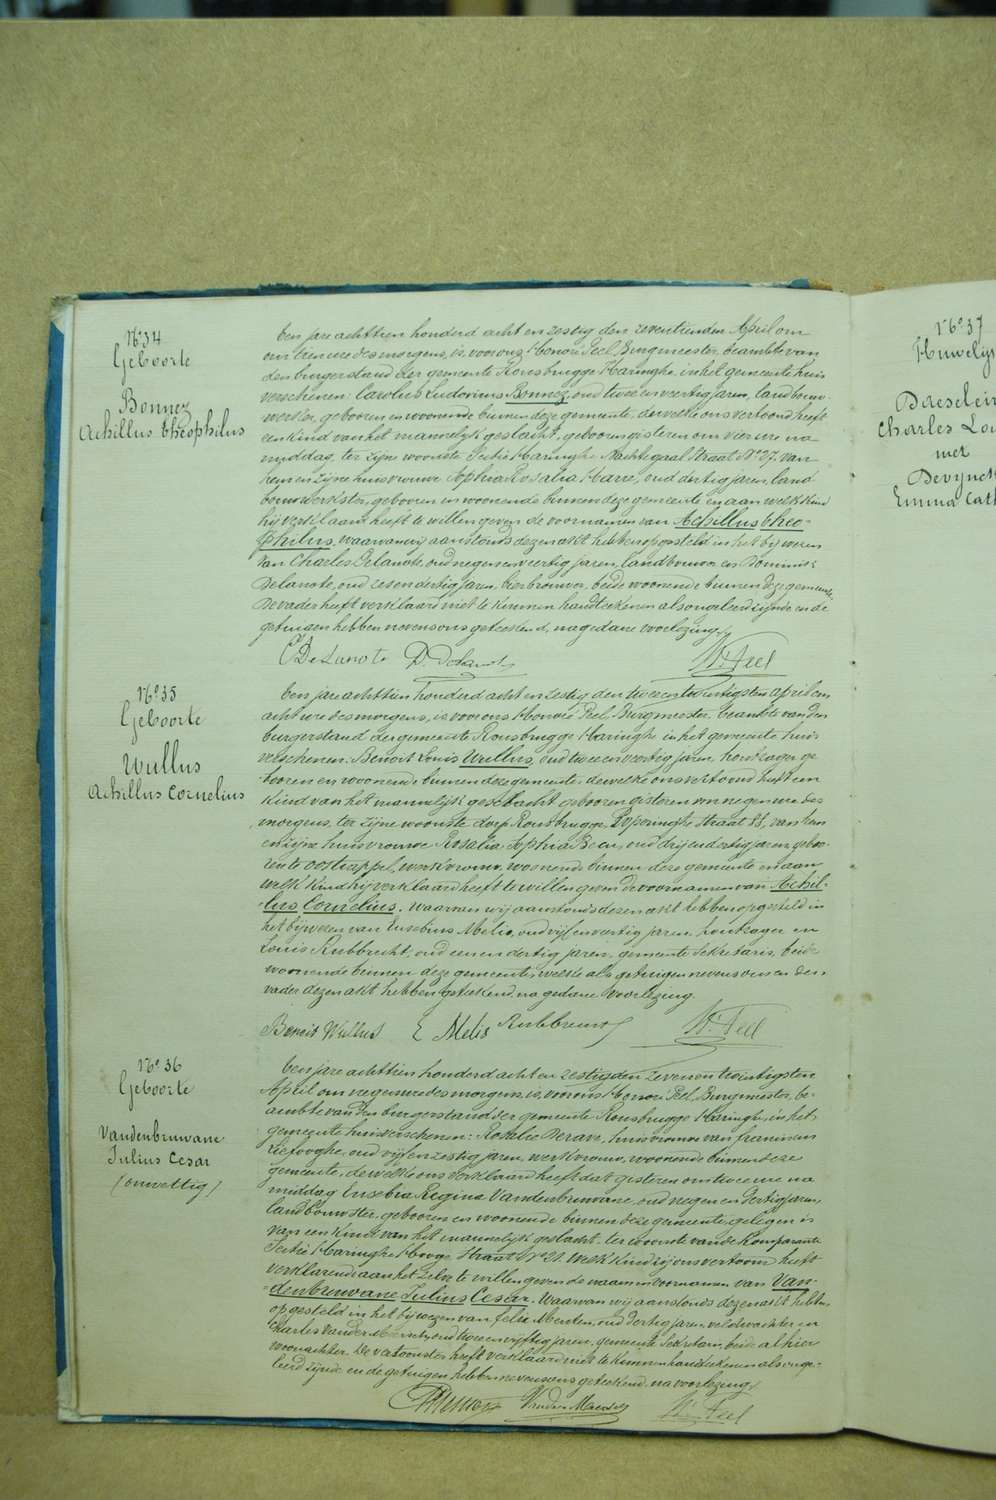 No 34
Geboorte
Bonnez
Achillus Theophilus
Ten jare achttien honderd acht en zestig den zeventienden April om
ure des morgens, is, voor ons Honoré Peel, Burgmeester, beambte van
den burgerstand der gemeente Rousbrugge Haringhe, in het gemeente huis
verschenen: Carolus Ludovicus Bonnez, oud twee en veertig jaren, landbouw-
werker, geboren en woonende binnen deze gemeente, dewelke ons vertoond heeft
een kind van het mannelijk geslacht, geboren gisteren om vier ure na
middag, ter zijne woonste Sectie Haringhe Nachtegaal Straat No 27. van
hem en zijne huisvrouwe Sophia Rosalia Harre, oud dertig jaren, land
bouwwerkster, geboren en woonende binnen deze gemeente en aan welk kind
hij verklaard heeft te willen geven de voornamen van Achillus Theo-
philus, waarvan wij aanstonds dezen akt hebben opgesteld in het bijwezen
van Charles DeLanote, oud negen en veertig jaren, landbouwer en Dominic
DeLanote, oud zes en dertig jaren, bierbrouwer, beide woonende binnen deze gemeente.
De vader heeft verklaard niet te kunnen handteekenen als ongeleerd zijnde en de
getuigen hebben nevens ons geteekend, na gedane voorlezing.
C DeLanote D. DeLanote H. Peel
No 35
Geboorte
Wullus
Achillus Cornelius
Ten jare achttien honderd acht en zestig den twee en twintigsten April om
acht ure des morgens, is voor ons Honoré Peel, Burgmeester, beambte van den
burgerstand der gemeente Rousbrugge Haringhe in het gemeente huis
verschenen: Benoit Louis Wullus, oud twee en veertig jaren, houtzager ge-
boren en woonende binnen deze gemeente, dewelke ons vertoond heeft een
kind van het mannelijk geslacht geboren gisteren om negen ure des
morgens, ter zijne woonste dorp Rousbrugge, Poperinghe straat 88, van hem
en zijne huisvrouwe Rosalia Sophia Been, oud drij en dertig jaren, gebo-
ren te Oostcappel, werkvrouw, woonende binnen deze gemeente en aan
welk kind hij verklaard heeft te willen geven de voornamen van Achil-
lus Cornelius. Waarvan wij aanstonds dezen akt hebben opgesteld in
het bijwezen van Eusebius Melis, oud vijf en veertig jaren, houtzager en
Louis Rubbrecht, oud een en dertig jaren, gemeente Sekretaris, beide
woonende binnen deze gemeente, welke als getuigen nevens ons en den
vader dezen akt hebben geteekend, na gedane voorlezing.
Benoit Wullus E Melis Rubbrecht H. Peel
No 36
Geboorte
Vandenbruwane
Julius Cesar
(onwettig)
Ten jare achttien honderd acht en zestig den zeven en twintigsten
April om negen ure des morgens, is, voor ons Honoré Peel, Burgmeester, be-
ambte van den burgerstand der gemeente Rousbrugge Haringhe, in het
gemeente huis verschenen: Rosalie Derave, huisvrouwe van franciscus
Liefooghe, oud vijf en zestig jaren, werkvrouw, woonende binnen deze
gemeente, dewelke ons verklaard heeft dat gisteren om twee ure na
middag Eusebia Regina Vandenbruwane, oud negen en dertig jaren,
landbouwster, geboren en woonende binnen deze gemeente, gelegen is
van een kind van het mannelijk geslacht, ter woonste van de komparante
Sectie Haringhe Hooge Straat No 21. Welk kind zij ons vertoond heeft
verklarende aan het zelve te willen geven de naam en voornamen van Van-
denbruwane Julius Cesar. Waarvan wij aanstonds dezen akt hebben
opgesteld in het bijwezen van felix Merten, oud dertig jaren, veldwachter en
Charles Vander Meersch, oud twee en vijftig jaren, gemeente Sekretaris, beide alhier
woonachtig. De vertoonster heeft verklaard niet te kunnen handteekenen als onge-
leerd zijnde en de getuigen hebben nevens ons geteekend, na voorlezing.
Vander Meersch H. Peel
No 37
Huwelijk
Charles Lou
met
Devynck
Emma Cath